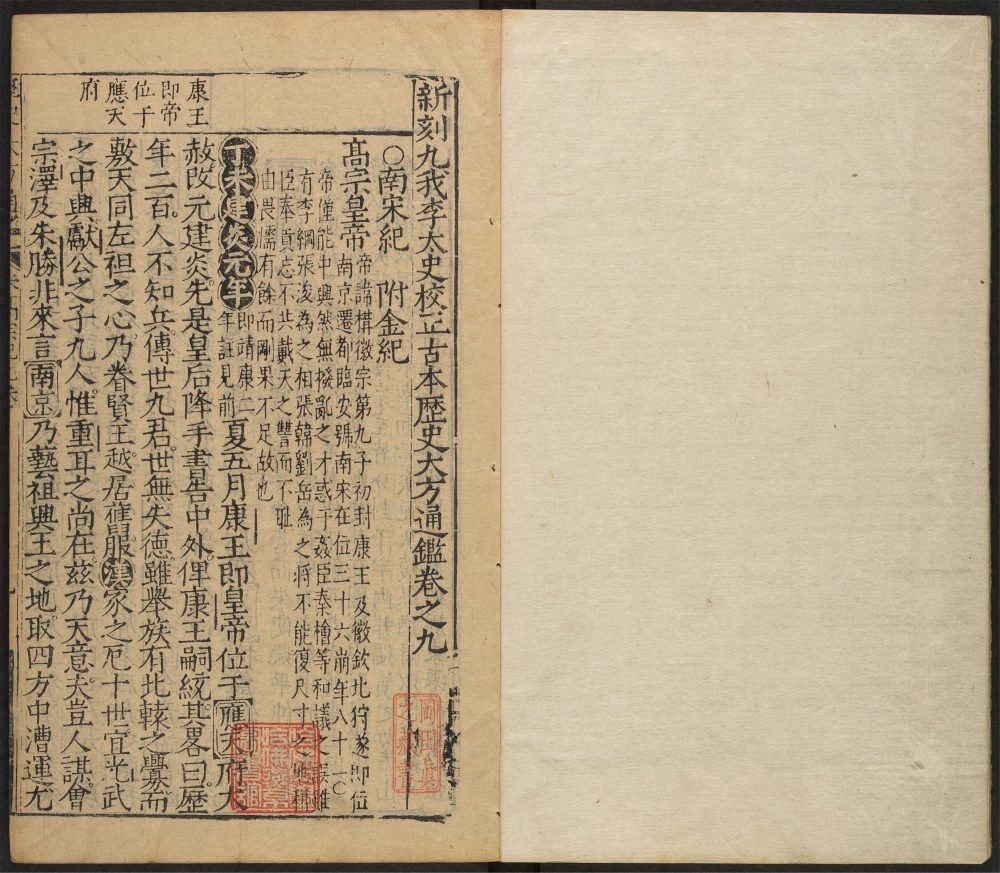 新刻九我李太史校正古本歷史大方通鑑卷之九
○南宋紀 附金紀
高宗皇帝
帝諱構徽宗第九子初封康王及徽欽北狩遂即位
南京遷都臨安號南宋在位三十六崩年八十一○
帝僅能中興然無撥亂之才惑于姦臣秦檜等和議之誤雖
有李綱張浚為之相張韓劉岳為之將不能復尺寸之地稱
臣奉貢忘不共戴天之讐而不耻
由畏懦有餘而剛果不足故也
丁未建炎元年
即靖康二
年註見前
夏五月康王即皇帝位于應天府大
康王
即帝
位于
應天
府
赦改元建炎先是皇后降手書告中外俾康王嗣統其畧曰歷
年二百人不知兵傳世九君世無失德雖舉族有北轅之釁而
敷天同左袒之心乃眷賢王越居舊服漢家之厄十世宜光武
之中興獻公之子九人惟重耳之尚在茲乃天意夫豈人謀會
宗澤及朱勝非來言南京乃藝祖興王之地取四方中漕運尤